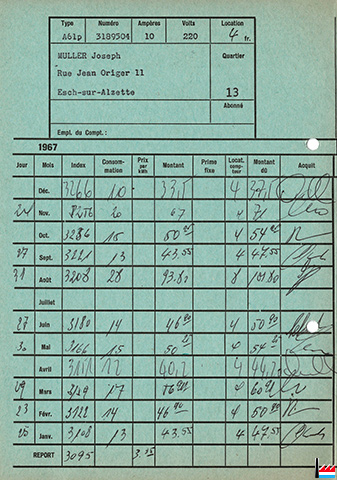 Type Numéro Ampères Volts Location
A61p 3189504 10 220 4 fr.
MULLER Joseph Quartier
Rue Jean Origer 11
Esch-sur-Alzette 13
Abonné
Empl. du Compt.:
1967
Jour Mois Index Consommation Prix par kWh Montant Prime fixe Locat. compteur Montant dû Acquit
Déc. 3266 10 33,5 4 37,5
Nov. 3256 20 67 4 71
Oct. 3236 15 50 25 4 54 25
27 Sept. 3221 13 43.55 4 47.55
31 Août 3208 28 93.80 8 101.80
Juillet
27 Juin 3180 14 46 90 4 50 90
30 Mai 3166 15 50 25 4 54 25
Avril 3151 12 40,2 4 44,2
29 Mars 17 4
23 Févr. 3122 14 46 90 4 50 90
25 Janv. 3108 13 43.55 4 47.55
REPORT 3095 3.35